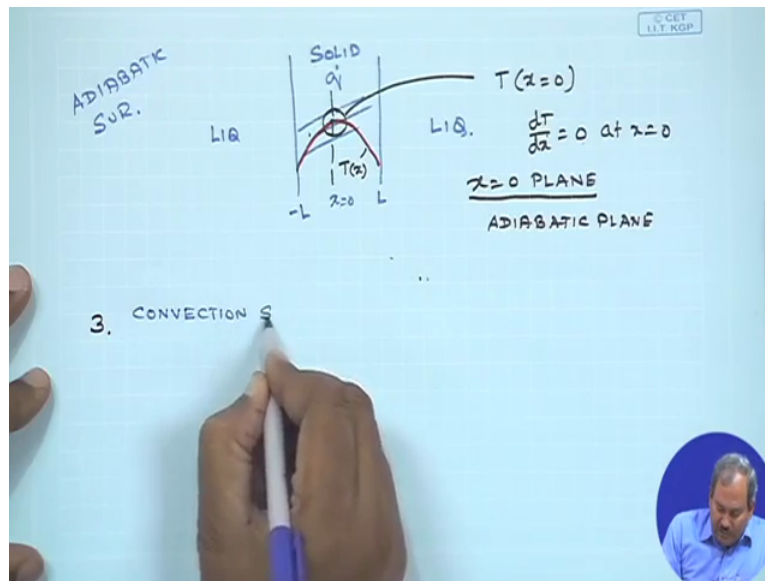 © CET
I.I.T. KGP
ADIABATIC
SUR.
SOLID
q̇
T(x=0)
LIQ
LIQ.
dT/dx = 0 at x=0
T(x)
x=0 PLANE
-L x=0 L
ADIABATIC PLANE
3. CONVECTION S